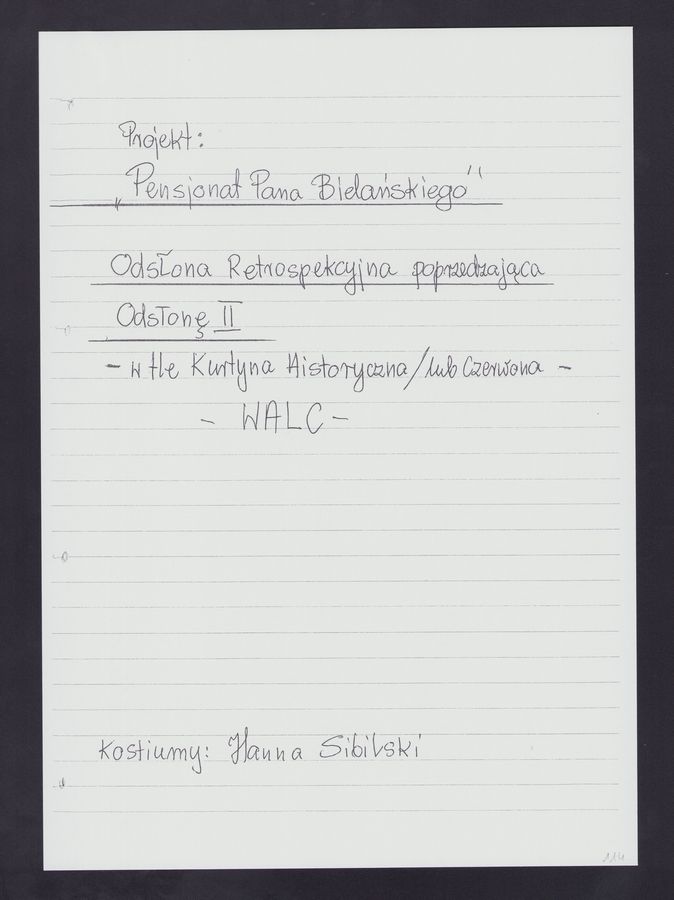 Projekt:
„Pensjonat Pana Bielańskiego"
Odsłona Retrospekcyjna poprzedzająca
Odsłonę II
- w tle Kurtyna Historyczna/lub Czerwona -
- WALC -
Kostiumy: Hanna Sibilski